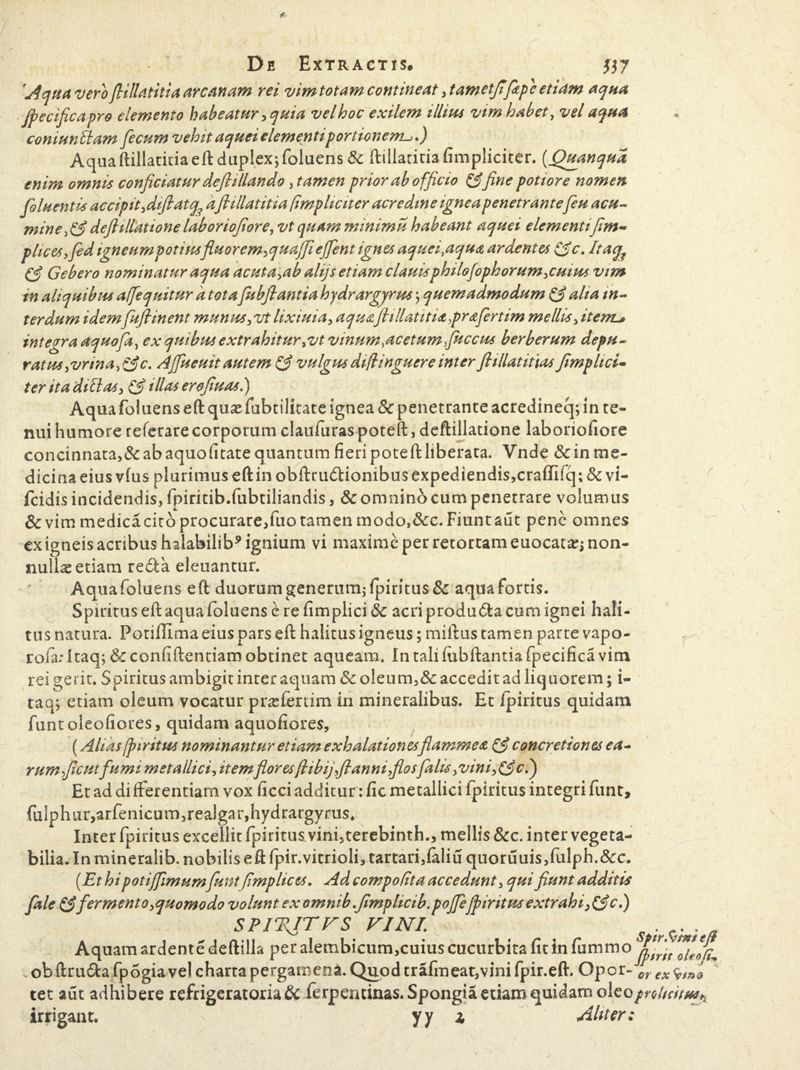 DE EXTRACTIS. 337
Aqua vero ſtillatitia arcanam rei vim totam contineat, tametſi ſæpe etiam aqua
ſpecifica pro elemento habeatur, quia vel hoc exilem illius vim habet, vel aqua
coniunctam ſecum vehit aquei elementi portionem.)
Aqua ſtillatitia eſt duplex; ſoluens & ſtillatitia ſimpliciter. (Quanquā
enim omnis conficiatur deſtillando, tamen prior ab officio & fine potiore nomen
ſoluentis accipit, diſtatq; à ſtillatitia ſimpliciter acredine ignea penetrante ſeu acu-
mine, & deſtillatione laborioſiore, vt quam minimū habeant aquei elementi ſim-
plices, ſed igneum potius fluorem, quaſſi eſſent ignes aquei, aquæ ardentes &c. Itaq;
& Gebero nominatur aqua acuta, ab alijs etiam clauis philoſophorum, cuius vim
in aliquibus aſſequitur à tota ſubſtantia hydrargyrus; quemadmodum & alia in-
terdum idem ſuſtinent munus, vt lixiuia, aquæ ſtillatitiæ, præſertim mellis, item
integra aquoſa, ex quibus extrahitur, vt vinum, acetum, ſuccus berberum depu-
ratus, vrina, &c. Aſſueuit autem & vulgus diſtinguere inter ſtillatitias ſimplici-
ter ita dictas, & illas eroſiuas.)
Aqua ſoluens eſt quæ ſubtilitate ignea & penetrante acredineq́; in te-
nui humore reſerare corporum clauſuras poteſt, deſtillatione laborioſiore
concinnata, & ab aquoſitate quantum fieri poteſt liberata. Vnde & in me-
dicina eius vſus plurimus eſt in obſtructionibus expediendis, craſſiſq́; & vi-
ſcidis incidendis, ſpiritib. ſubtiliandis, & omninò cum penetrare volumus
& vim medicā citò procurare, ſuo tamen modo, &c. Fiunt aūt penè omnes
ex igneis acribus halabilibꝰ ignium vi maximè per retortam euocatæ; non-
nullæ etiam rectà eleuantur.
Aqua ſoluens eſt duorum generum; ſpiritus & aqua fortis.
Spiritus eſt aqua ſoluens è re ſimplici & acri producta cum ignei hali-
tus natura. Potiſſima eius pars eſt halitus igneus; miſtus tamen parte vapo-
roſa: Itaq; & conſiſtentiam obtinet aqueam. In tali ſubſtantia ſpecificā vim
rei gerit. Spiritus ambigit inter aquam & oleum, & accedit ad liquorem; i-
taq; etiam oleum vocatur præſertim in mineralibus. Et ſpiritus quidam
ſunt oleoſiores, quidam aquoſiores,
(Aliàs ſpiritus nominantur etiam exhalationes flammeæ & concretiones ea-
rum, ſicut fumi metallici, item flores ſtibij, ſtanni, flos ſalis, vini, &c.)
Et ad differentiam vox ſicci additur: ſic metallici ſpiritus integri ſunt,
ſulphur, arſenicum, realgar, hydrargyrus.
Inter ſpiritus excellit ſpiritus vini, terebinth., mellis &c. inter vegeta-
bilia. In mineralib. nobilis eſt ſpir. vitrioli, tartari, ſaliū quorūuis, ſulph. &c.
(Et hi potiſſimum ſunt ſimplices. Ad compoſita accedunt, qui fiunt additis
ſale & fermento, quomodo volunt ex omnib. ſimplicib. poſſe ſpiritus extrahi, &c.)
SPIRITVS VINI.
Aquam ardentē deſtilla per alembicum, cuius cucurbita ſit in ſummo
obſtructa ſpōgia vel charta pergamenà. Quod trāſmeat, vini ſpir. eſt. Opor-
tet aūt adhibere refrigeratoria & ſerpentinas. Spongiā etiam quidam oleo
irrigant.
Spir. vini eſt
ſpirit oleoſi-
or ex vino
prolicitus,
yy 2 Aliter: